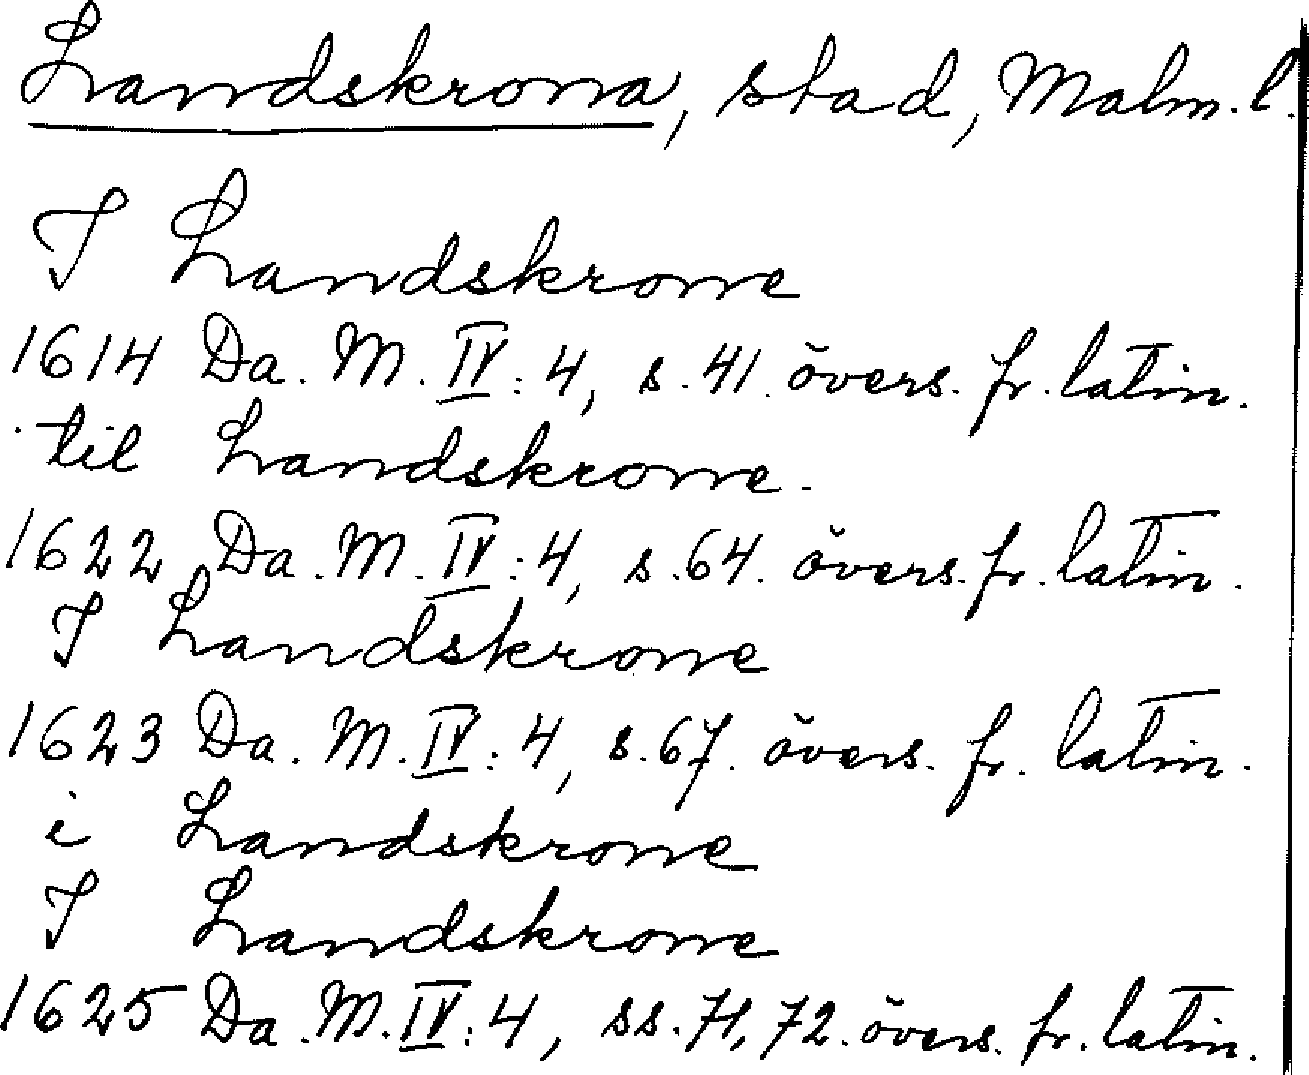 Landskrona, stad, Malm. l.
I Landskrone
1614 Da. M. IV: 4, s. 41. övers. fr. latin.
til Landskrone.
1622 Da. M. IV: 4, s. 64. övers. fr. latin.
I Landskrone
1623 Da. M. IV: 4, s. 67. övers. fr. latin.
i Landskrone
I Landskrone
1625 Da. M. IV: 4, ss. 71, 72. övers. fr. latin.